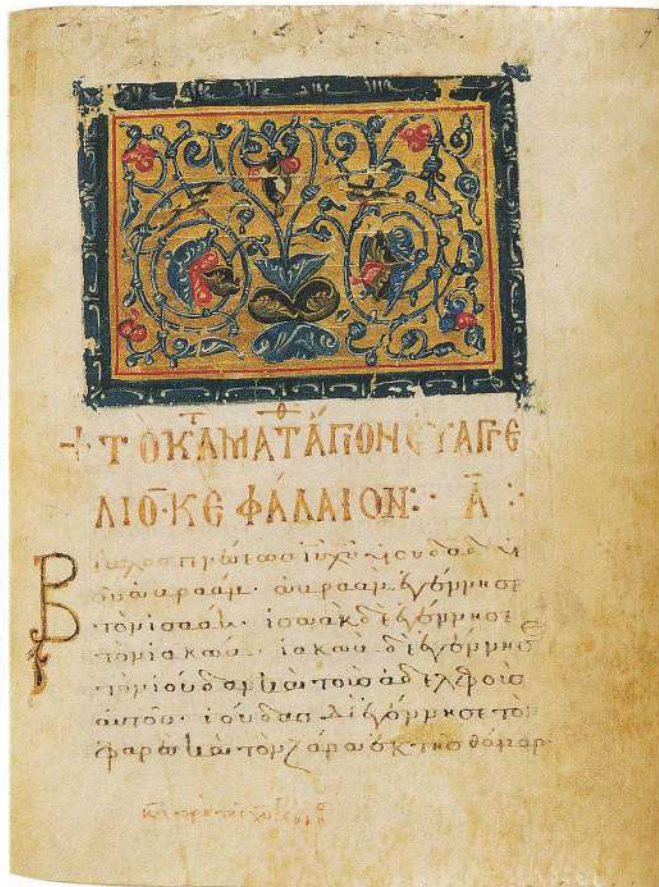 + ΤὸΚΑ̅ΜΑΤΘΑΙΟΝ ΕΥΑΓΓΕ
ΛΙΟ̅· ΚΕΦΆΛΑΙΟΝ:· Α̅ :·
Βίβλος γενέσεως ιυ χυ υιου δαδ υι
ου αβραάμ· αβραὰμ ἐγέννησε
τὸν ισαάκ· ισαὰκ δὲ ἐγέννησε
τὸν ιακώβ· ιακὼβ δὲ ἐγέννησε
τὸν ιούδαν και τοὺς ἀδελφοὺς
αυτοῦ· ιούδας δὲ ἐγέννησε τὸν
φαρὲς και τὸν ζάρα ἐκ της θάμαρ·